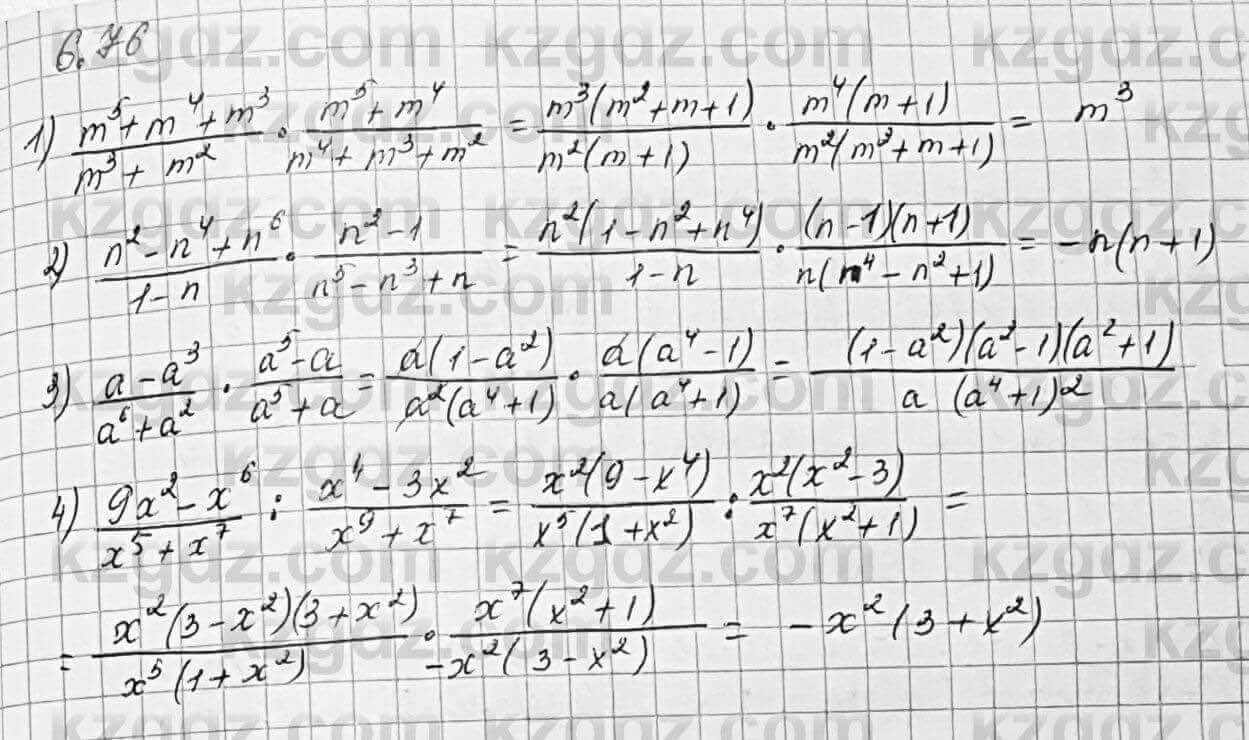 6.76
1) (m⁵+m⁴+m³)/(m³+m²) · (m⁵+m⁴)/(m⁴+m³+m²) = (m³(m²+m+1))/(m²(m+1)) · (m⁴(m+1))/(m²(m³+m+1)) = m³
2) (n²-n⁴+n⁶)/(1-n) · (n²-1)/(n⁵-n³+n) = (n²(1-n²+n⁴))/(1-n) · ((n-1)(n+1))/(n(n⁴-n²+1)) = -n(n+1)
3) (a-a³)/(a⁶+a²) · (a⁵-a)/(a⁵+a) = (a(1-a²))/(a²(a⁴+1)) · (a(a⁴-1))/(a(a⁴+1)) = ((1-a²)(a²-1)(a²+1))/(a (a⁴+1)²)
4) (9x²-x⁶)/(x⁵+x⁷) : (x⁴-3x²)/(x⁹+x⁷) = (x²(9-x⁴))/(x⁵(1+x²)) : (x²(x²-3))/(x⁷(x²+1)) =
= (x²(3-x²)(3+x²))/(x⁵(1+x²)) · (x⁷(x²+1))/(-x²(3-x²)) = -x²(3+x²)
kzgdz.com